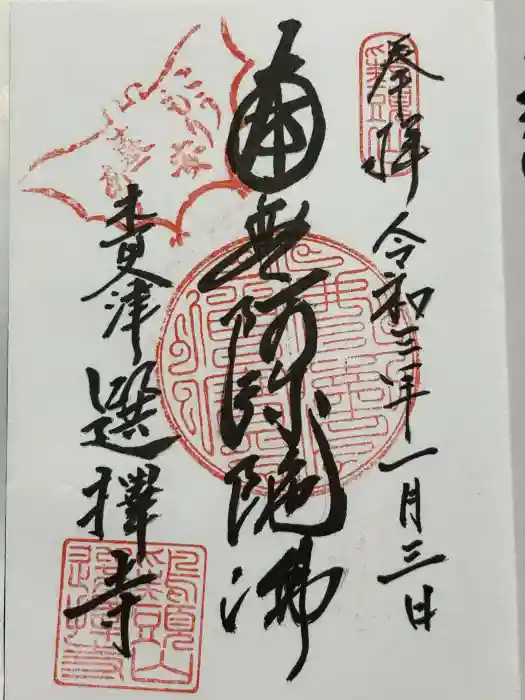 奉拝
令和三年一月三日
南無阿弥陀佛
木更津
選擇寺